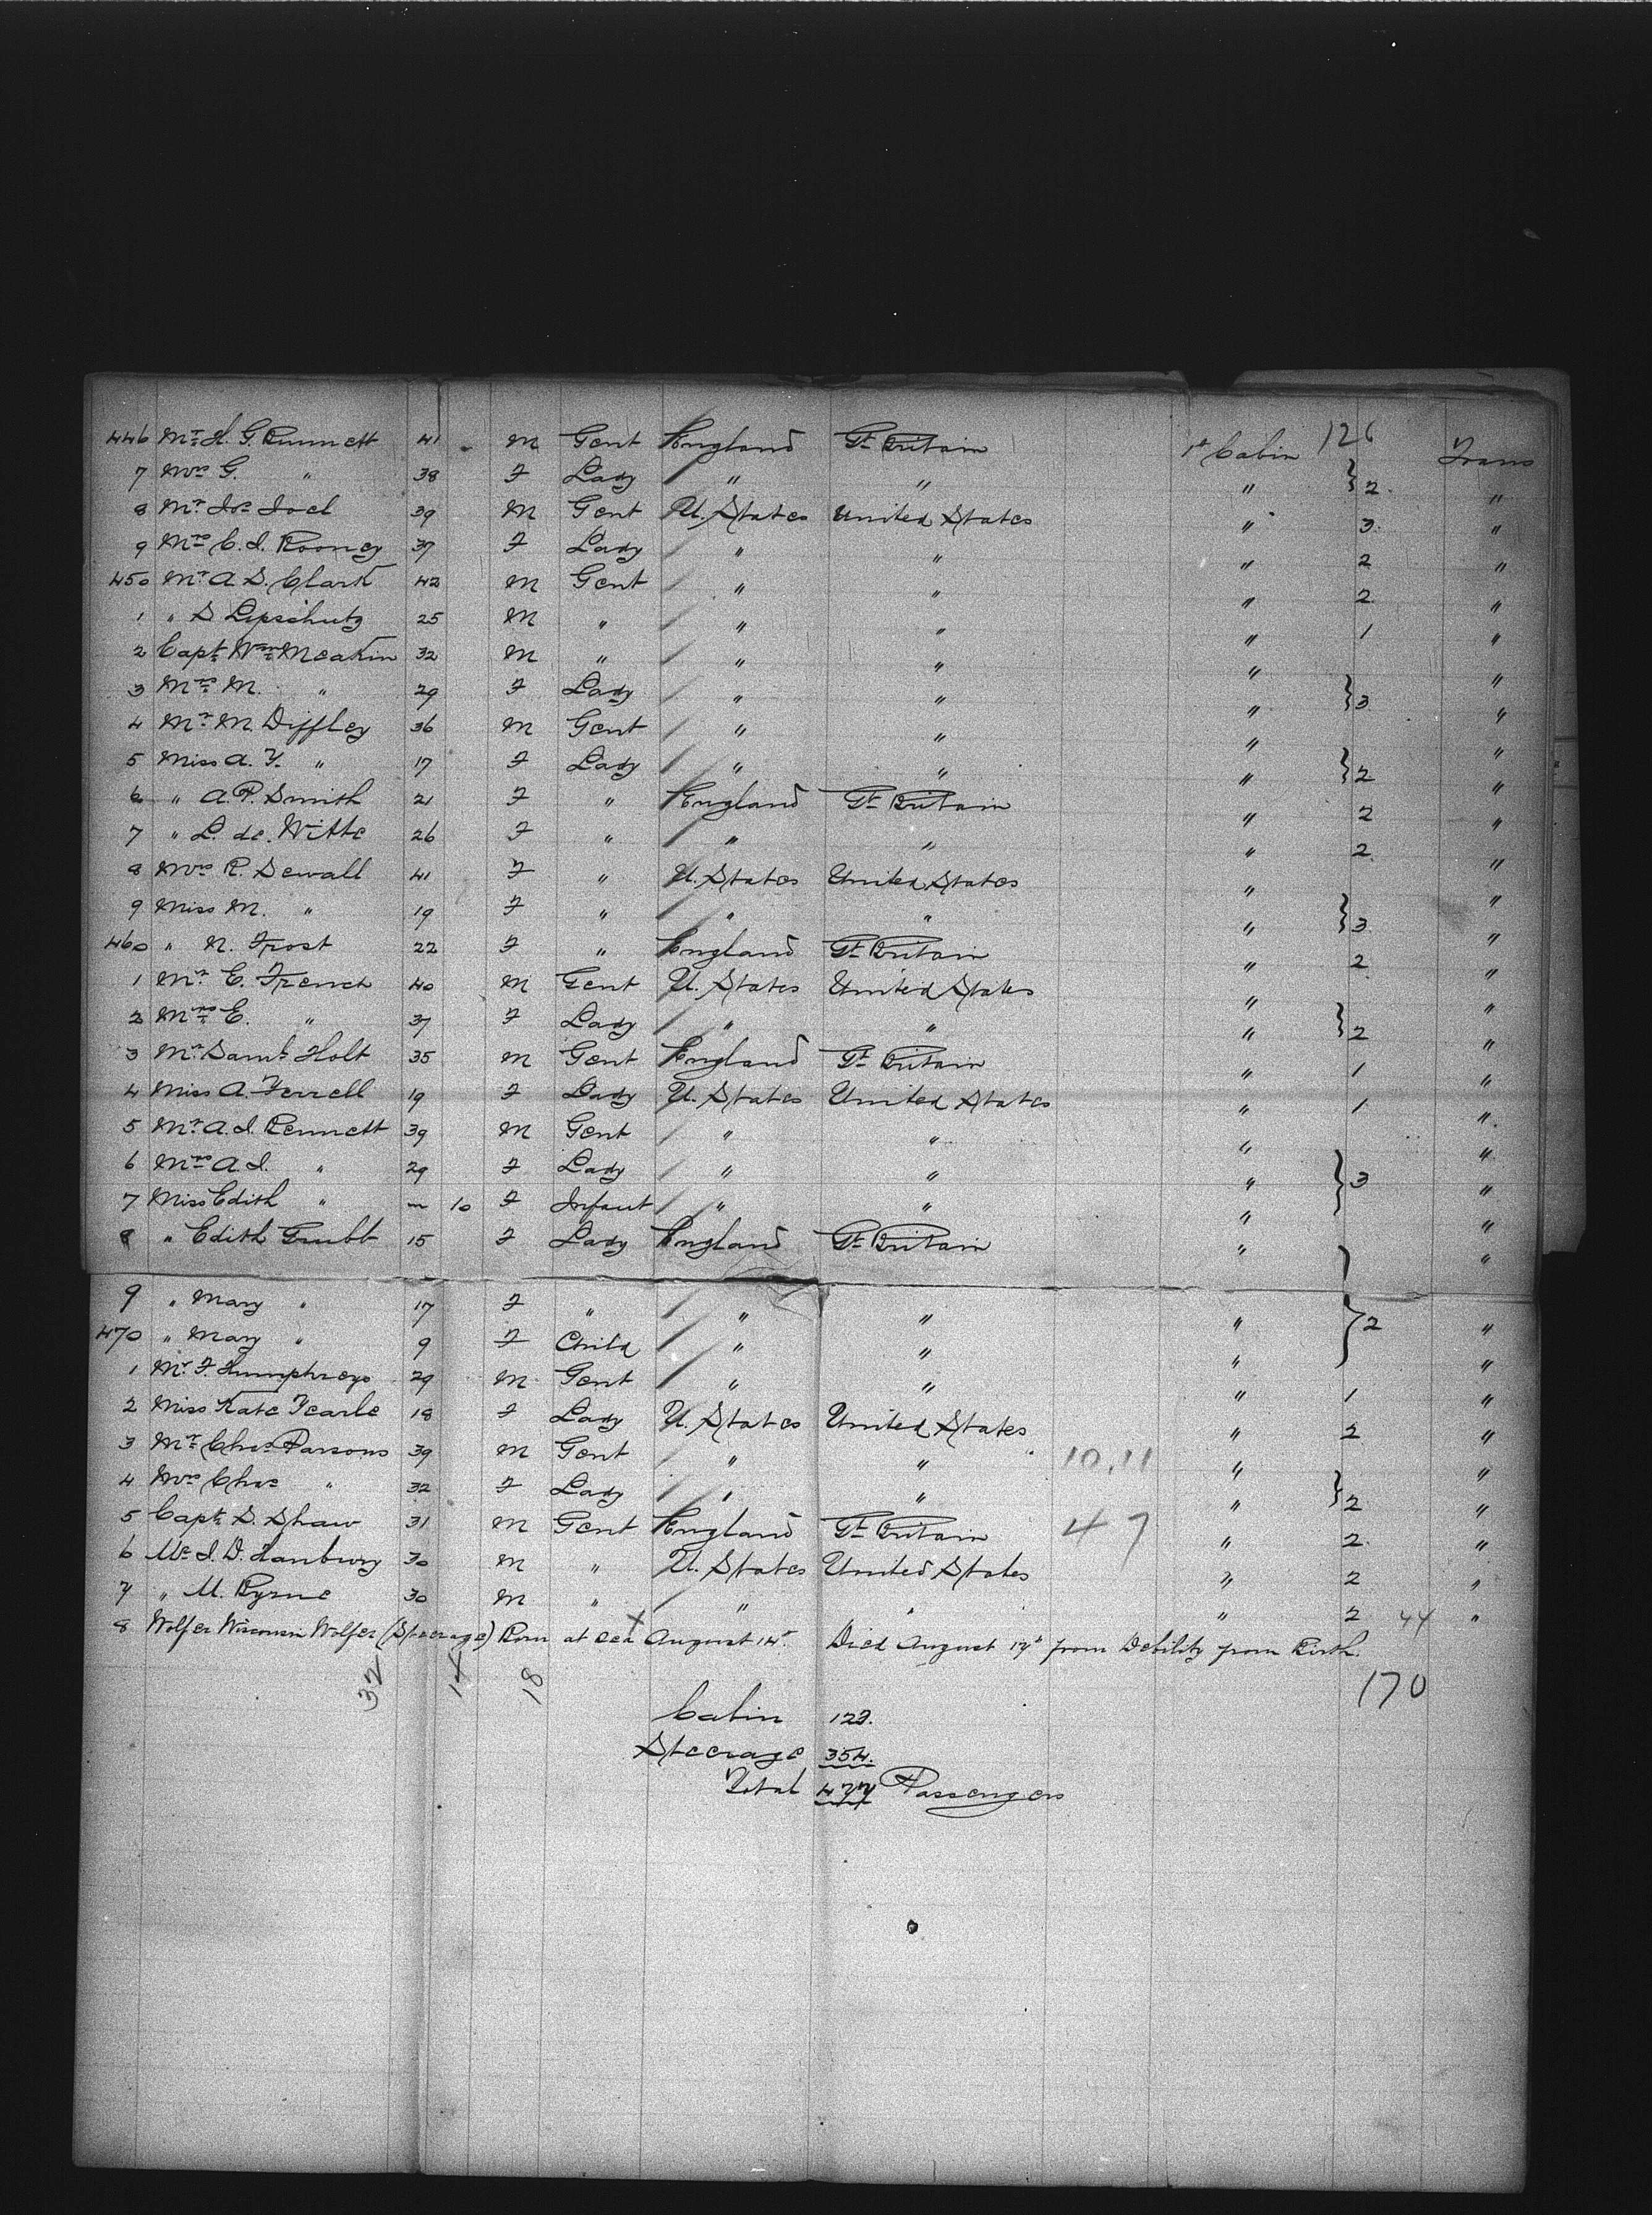 126
446 Mr. H. G. Bennett 41 M Gent England Gt. Britain 1st Cabin Trans
7 Mrs G. " 38 F Lady " " " } 2 "
8 Mr. Jos. Joel 39 M Gent U. States United States " 3 "
9 Mrs C. J. Rooney 37 F Lady " " " 2 "
450 Mr. A. S. Clark 42 M Gent " " " 2 "
1 " S Lipschutz 25 M " " " " 1 "
2 Capt. Wm. Meakin 32 M " " " " "
3 Mrs M. " 29 F Lady " " " } 3 "
4 Mr. M. Diffley 36 M Gent " " " "
5 Miss A. Y. " 17 F Lady " " " } 2 "
6 " A. P. Smith 21 F " England Gt. Britain " 2 "
7 " L. de. Witte 26 F " " " " 2 "
8 Mrs R. Sewall 41 F " U. States United States " "
9 Miss M. " 19 F " " " " } 3 "
460 " N. Frost 22 F " England Gt. Britain " 2 "
1 Mr. E. French 40 M Gent U. States United States " "
2 Mrs E. " 37 F Lady " " " } 2 "
3 Mr. Saml. Holt 35 M Gent England Gt. Britain " 1 "
4 Miss A. Ferrell 19 F Lady U. States United States " 1 "
5 Mr. A. J. Bennett 39 M Gent " " " "
6 Mrs A. J. " 29 F Lady " " " } 3 "
7 Miss Edith " — 10 F Infant " " " "
8 " Edith Grubb 15 F Lady England Gt. Britain " "
9 " Mary " 17 F " " " " } 2 "
470 " Mary " 9 F Child " " " "
1 Mr. F. Humphreys 29 M Gent " " " 1 "
2 Miss Kate Fearle 18 F Lady U. States United States " 2 "
3 Mr. Chas. Parsons 39 M Gent " " 10.11 " "
4 Mrs Chas " 32 F Lady " " " } 2 "
5 Capt. S. Shaw 31 M Gent England Gt. Britain 47 " 2 "
6 Mr. J. D. Hanbury 30 M " U. States United States " 2 "
7 " M. Byrne 30 M " " " " 2 44 "
8 Wolfer Wisconsin Wolfer (Steerage) Born at Sea X August 14th. Died August 17th from Debility from Birth.
32 14 18 170
Cabin 123.
Steerage 354.
Total 477 Passengers